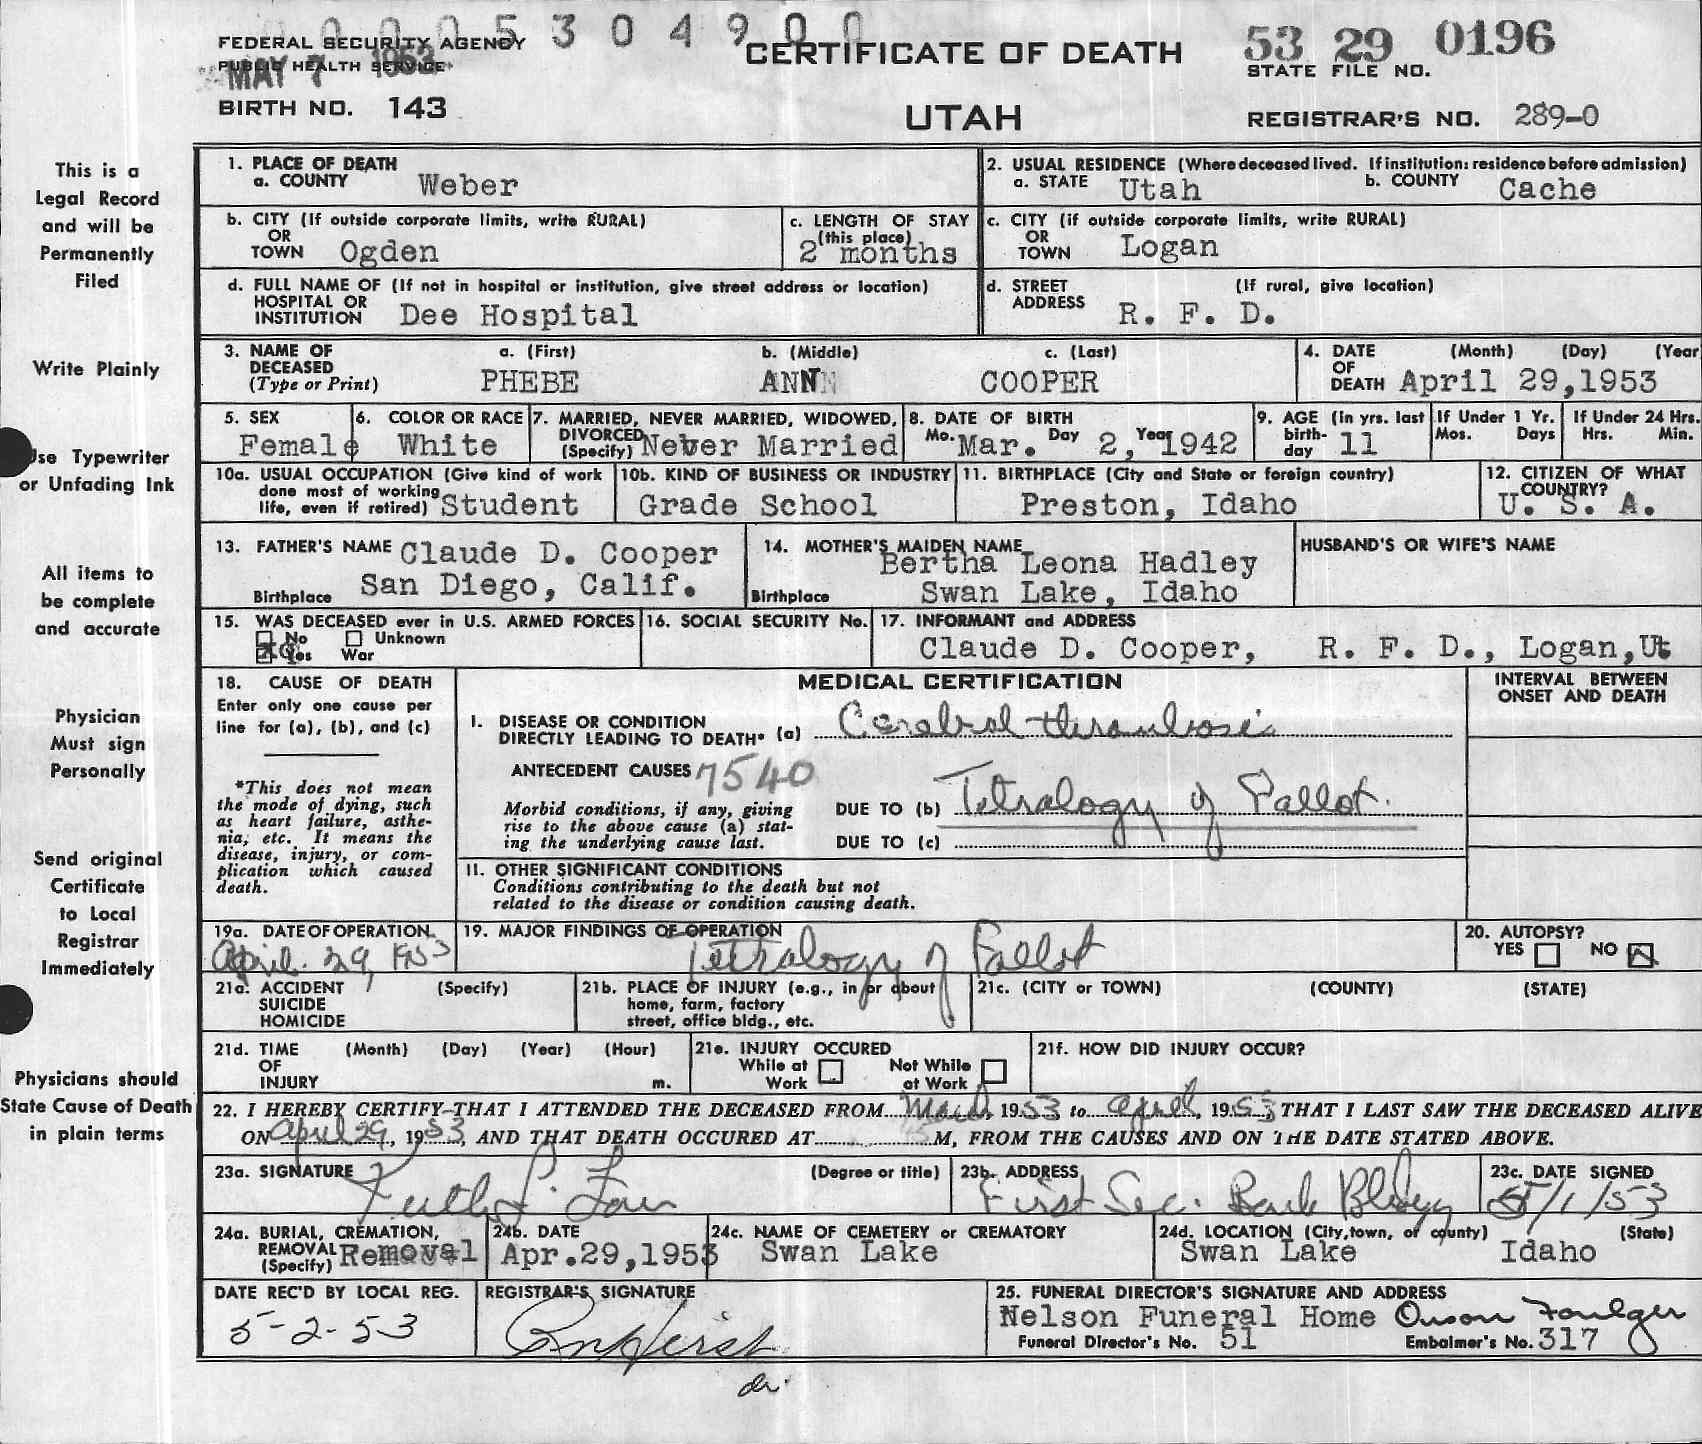 0 0 0 5 3 0 4 9 0 0
FEDERAL SECURITY AGENCY
PUBLIC HEALTH SERVICE
MAY 7 1953
BIRTH NO. 143
CERTIFICATE OF DEATH
UTAH
53 29 0196
STATE FILE NO.
REGISTRAR'S NO. 289-0
This is a
Legal Record
and will be
Permanently
Filed
Write Plainly
Use Typewriter
or Unfading Ink
All items to
be complete
and accurate
Physician
Must sign
Personally
Send original
Certificate
to Local
Registrar
Immediately
Physicians should
State Cause of Death
in plain terms
1. PLACE OF DEATH
a. COUNTY Weber
2. USUAL RESIDENCE (Where deceased lived. If institution: residence before admission)
a. STATE Utah b. COUNTY Cache
b. CITY (If outside corporate limits, write RURAL)
OR
TOWN Ogden
c. LENGTH OF STAY
(this place)
2 months
c. CITY (if outside corporate limits, write RURAL)
OR
TOWN Logan
d. FULL NAME OF (If not in hospital or institution, give street address or location)
HOSPITAL OR
INSTITUTION Dee Hospital
d. STREET (If rural, give location)
ADDRESS R. F. D.
3. NAME OF DECEASED (Type or Print)
a. (First) b. (Middle) c. (Last)
PHEBE ANN COOPER
4. DATE (Month) (Day) (Year
OF
DEATH April 29,1953
5. SEX
Female
6. COLOR OR RACE
White
7. MARRIED, NEVER MARRIED, WIDOWED,
DIVORCED (Specify) Never Married
8. DATE OF BIRTH
Mo. Mar. Day 2, Year 1942
9. AGE (In yrs. last
birth-
day 11
If Under 1 Yr.
Mos. Days
If Under 24 Hrs.
Hrs. Min.
10a. USUAL OCCUPATION (Give kind of work
done most of working
life, even if retired) Student
10b. KIND OF BUSINESS OR INDUSTRY
Grade School
11. BIRTHPLACE (City and State or foreign country)
Preston, Idaho
12. CITIZEN OF WHAT
COUNTRY?
U. S. A.
13. FATHER'S NAME Claude D. Cooper
Birthplace San Diego, Calif.
14. MOTHER'S MAIDEN NAME
Bertha Leona Hadley
Birthplace Swan Lake, Idaho
HUSBAND'S OR WIFE'S NAME
15. WAS DECEASED ever in U.S. ARMED FORCES
No Unknown
Yes War
16. SOCIAL SECURITY No.
17. INFORMANT and ADDRESS
Claude D. Cooper, R. F. D., Logan,Ut
18. CAUSE OF DEATH
Enter only one cause per
line for (a), (b), and (c)
*This does not mean
the mode of dying, such
as heart failure, asthe-
nia, etc. It means the
disease, injury, or com-
plication which caused
death.
MEDICAL CERTIFICATION
INTERVAL BETWEEN
ONSET AND DEATH
I. DISEASE OR CONDITION
DIRECTLY LEADING TO DEATH* (a) Cerebral thrombosis
ANTECEDENT CAUSES 7540
Morbid conditions, if any, giving
rise to the above cause (a) stat-
ing the underlying cause last.
DUE TO (b) Tetralogy of Fallot.
DUE TO (c)
11. OTHER SIGNIFICANT CONDITIONS
Conditions contributing to the death but not
related to the disease or condition causing death.
19a. DATE OF OPERATION
April 29, 1953
19. MAJOR FINDINGS OF OPERATION
Tetralogy of Fallot
20. AUTOPSY?
YES NO
21a. ACCIDENT (Specify)
SUICIDE
HOMICIDE
21b. PLACE OF INJURY (e.g., in or about
home, farm, factory
street, office bldg., etc.
21c. (CITY or TOWN) (COUNTY) (STATE)
21d. TIME (Month) (Day) (Year) (Hour)
OF
INJURY m.
21e. INJURY OCCURED
While at Work Not While at Work
21f. HOW DID INJURY OCCUR?
22. I HEREBY CERTIFY THAT I ATTENDED THE DECEASED FROM March, 1953 to April, 1953 THAT I LAST SAW THE DECEASED ALIVE
ON April 29, 1953, AND THAT DEATH OCCURED AT M, FROM THE CAUSES AND ON THE DATE STATED ABOVE.
23a. SIGNATURE (Degree or title)
23b. ADDRESS
First Sec. Bank Bldg
23c. DATE SIGNED
5/1/53
24a. BURIAL, CREMATION,
REMOVAL (Specify) Removal
24b. DATE
Apr.29,1953
24c. NAME OF CEMETERY or CREMATORY
Swan Lake
24d. LOCATION (City, town, of county) (State)
Swan Lake Idaho
DATE REC'D BY LOCAL REG.
5-2-53
REGISTRAR'S SIGNATURE
25. FUNERAL DIRECTOR'S SIGNATURE AND ADDRESS
Nelson Funeral Home Orson Foulger
Funeral Director's No. 51 Embalmer's No. 317